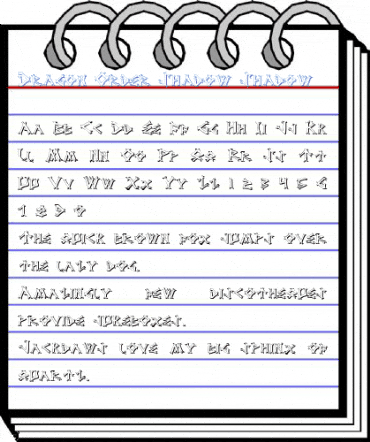 Dragon Order Shadow Shadow
Aa Bb Cc Dd Ee Ff Gg Hh Ii Jj Kk
Ll Mm Nn Oo Pp Qq Rr Ss Tt
Uu Vv Ww Xx Yy Zz 1 2 3 4 5 6
7 8 9 0
The quick brown fox jumps over
the lazy dog.
Amazingly few discotheques
provide jukeboxes.
Jackdaws love my big sphinx of
quartz.